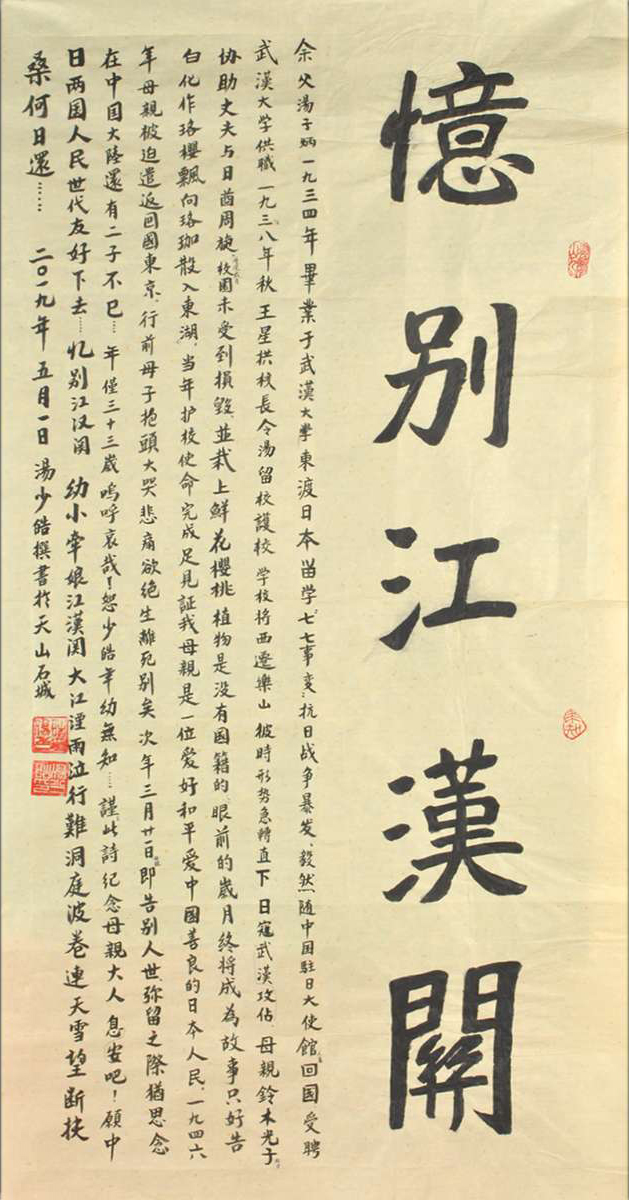 憶别江漢關
余父湯子炳一九三四年畢業于武漢大學東渡日本留学七七事变抗日战争暴发、毅然随中国駐日大使館回国受聘
武漢大学供職一九三八年秋王星拱校長令湯留校護校学校将西遷樂山彼時形势急轉直下日寇武漢攻佔母親鈴木光子
协助丈夫与日酋周旋校園未受到損毀並栽上鮮花櫻桃植物是没有國籍的眼前的歲月终将成為故事只好告
白化作珞櫻飄向珞珈散入東湖.当年护校使命完成足見証我母親是一位爱好和平爱中國善良的日本人民.一九四六
年母親被迫遣返回國東京.行前母子抱頭大哭悲痛欲绝生離死别矣次年三月廿一日即告别人世弥留之際猶思念
在中国大陸還有二子不已…年僅三十三歲嗚呼哀哉！恕少皓年幼無知…謹此詩纪念母親大人息安吧！願中
日两国人民世代友好下去……忆别江汉関幼小牽娘江漢関大江湮雨泣行難洞庭波卷連天雪望断扶
桑何日還……二〇一九年五月一日湯少皓撰書於天山石城